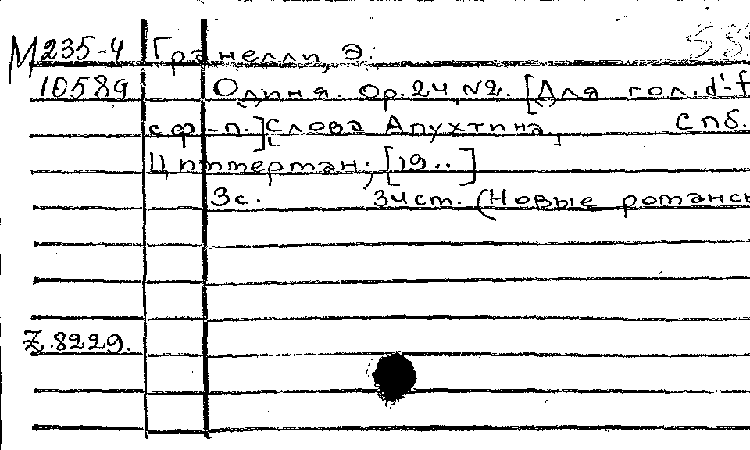 М 235-4 Гранелли, Э.
10589 Одиня. Ор. 24 №2. [Для гол. d'-f
с ф.-п.] Слова Апухтина. Спб.
Циммерман, [19..]
3с. 34 см. (Новые романсы
Z.8229.